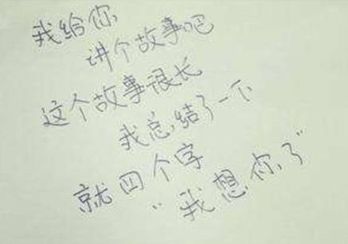 我给你
讲个故事吧
这个故事很长
我总结了一下
就四个字
“我想你了”